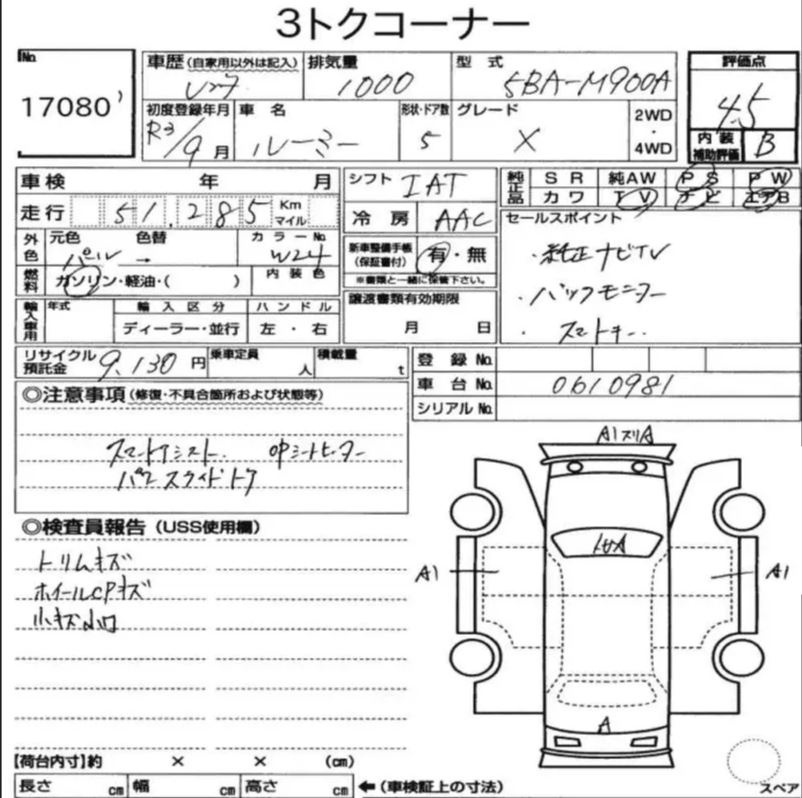 3トクコーナー
No.
17080
車歴(自家用以外は記入)
レンタ
排気量
1000
型式
5BA-M900A
評価点
4.5
初度登録年月
R3/9月
車名
ルーミー
形状・ドア数
5
グレード
X
2WD
・
4WD
内装
補助評価
B
車検 年 月
シフト
IAT
純正品
SR 純AW PS PW
カワ TV ナビ エアB
走行
51,285
Km
マイル
冷房
AAC
セールスポイント
・純正ナビTV
・バックモニター
・スマートキー
外色
元色
パール
色替
→
カラーNo.
W24
新車整備手帳
(保証書付)
有・無
※書類と一緒に保管下さい。
燃料
ガソリン・軽油・( )
内装色
輸入車用
年式
輸入区分
ディーラー・並行
ハンドル
左・右
譲渡書類有効期限
月 日
リサイクル
預託金
9,130円
乗車定員
人
積載量
t
登録No.
車台No.
0610981
シリアルNo.
◎注意事項(修復・不具合箇所および状態等)
スマートアシスト. OPシートヒーター
パワースライドドア
A1スリA
◎検査員報告(USS使用欄)
トリムキズ
ホイールCPキズ
小キズ小凹
A1
A1
A
【荷台内寸】約 × × (cm)
長さ cm 幅 cm 高さ cm ←(車検証上の寸法)
スペア